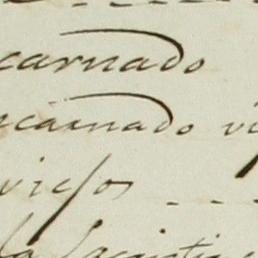 carnado
ncarnado vi
viejos
la Sacristi